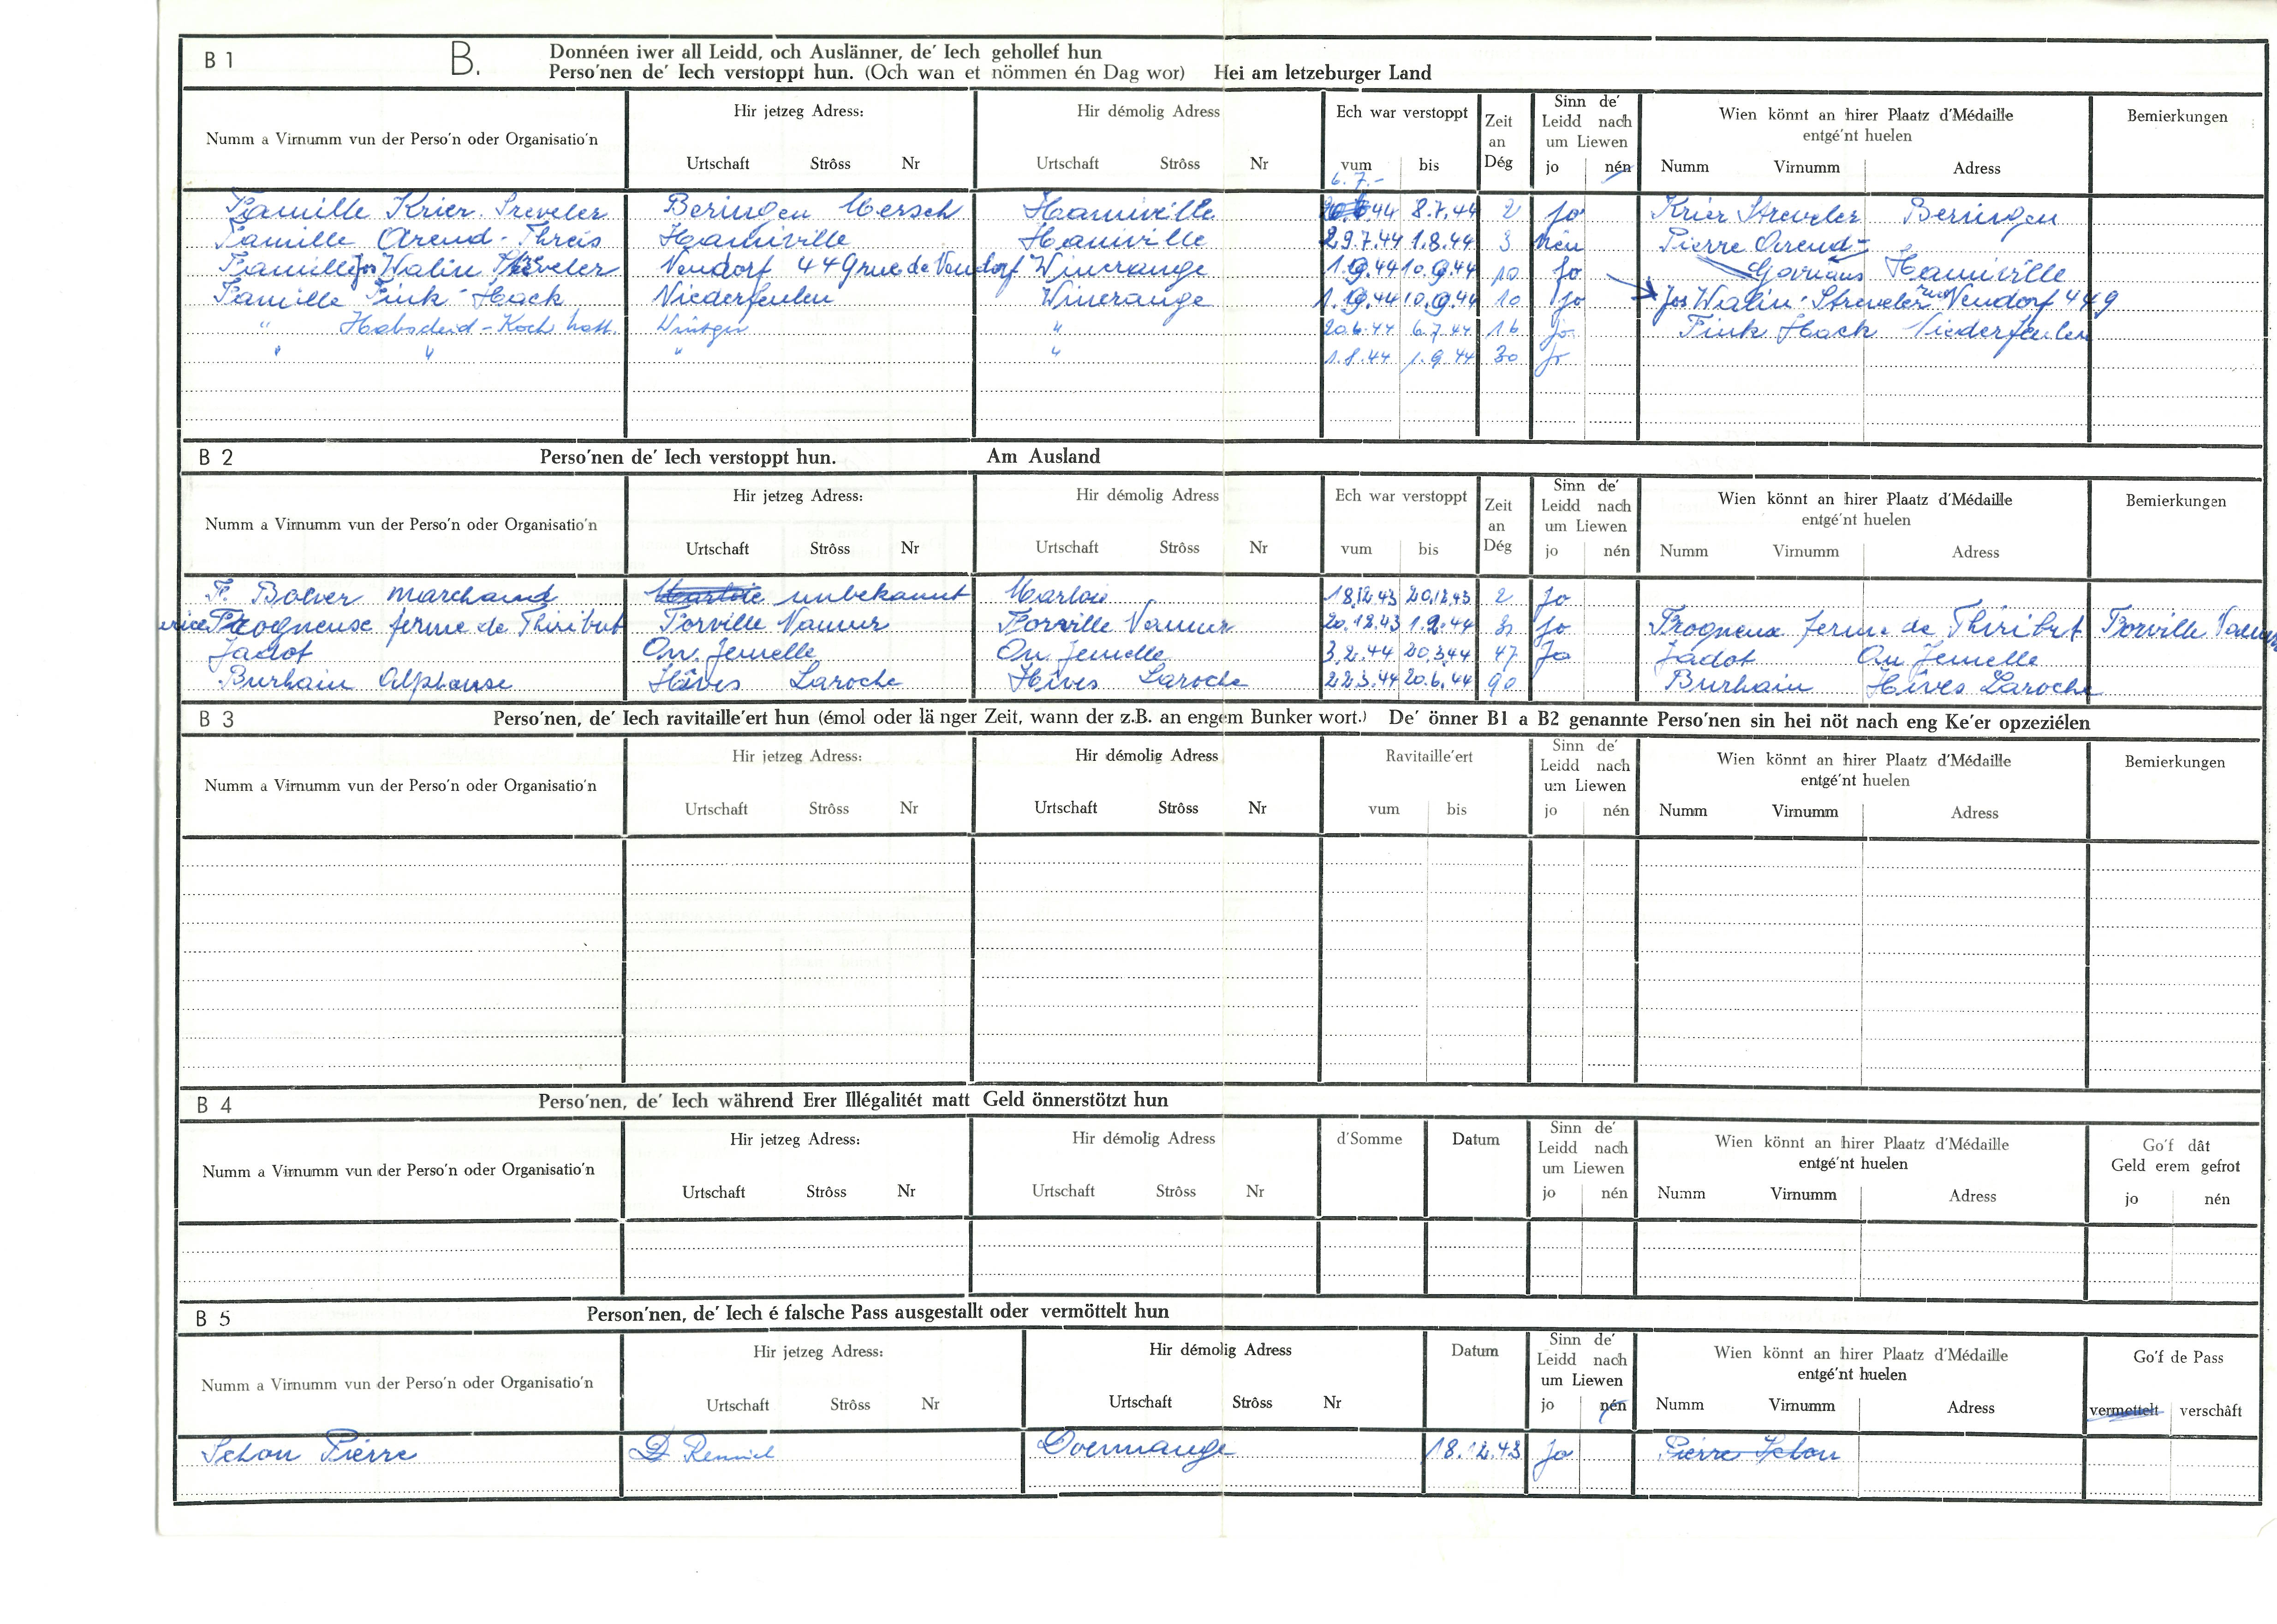 B 1 B. Donnéen iwer all Leidd, och Auslänner, de' Iech gehollef hun
Perso'nen de' Iech verstoppt hun. (Och wan et nömmen én Dag wor) Hei am letzeburger Land
Numm a Virnumm vun der Perso'n oder Organisatio'n Hir jetzeg Adress: Urtschaft Strôss Nr Hir démolig Adress Urtschaft Strôss Nr Ech war verstoppt vum bis Zeit an Dég Sinn de' Leidd nach um Liewen jo nén Wien könnt an hirer Plaatz d'Médaille entgé'nt huelen Numm Virnumm Adress Bemierkungen
6.7.-
Famille Krier Sreveler Beringen Mersch Hamiville 44 8.7.44 2 Jo Krier Streveler Beringen
Famille Arend-Threis Hamiville Hamiville 29.7.44 1.8.44 3 nén Pierre Arend-
Famille Jos Walin Streveler Vendorf 449 rue de Vendorf Wincrange 1.9.44 10.9.44 10 Jo Hamiville
Famille Fink-Hack Niederfeulen Wincrange 1.9.44 10.9.44 10 Jo Jos Walin-Streveler rue Vendorf 449
" Habscheid-Koch hatt " 20.6.44 6.7.44 16 jo Fink Hack Niederfeulen
" " " " 1.8.44 1.9.44 30 Jo
B 2 Perso'nen de' Iech verstoppt hun. Am Ausland
Numm a Virnumm vun der Perso'n oder Organisatio'n Hir jetzeg Adress: Urtschaft Strôss Nr Hir démolig Adress Urtschaft Strôss Nr Ech war verstoppt vum bis Zeit an Dég Sinn de' Leidd nach um Liewen jo nén Wien könnt an hirer Plaatz d'Médaille entgé'nt huelen Numm Virnumm Adress Bemierkungen
F. marchand unbekannt Marloie 18.12.43 20.12.43 2 Jo
Frogneuse ferme de Thiribut Forville Namur Forville Namur 20.12.43 1.2.44 Jo Frogneux ferme de Thiribut Forville Namur
Jadot On. Jemelle On Jemelle 3.2.44 20.3.44 47 Jo Jadot On Jemelle
Burhain Alphonse Hives Laroche Hives Laroche 22.3.44 20.6.44 90 Burhain Hives Laroche
B 3 Perso'nen, de' Iech ravitaille'ert hun (émol oder länger Zeit, wann der z.B. an engem Bunker wort.) De' önner B1 a B2 genannte Perso'nen sin hei nöt nach eng Ke'er opzeziélen
Numm a Virnumm vun der Perso'n oder Organisatio'n Hir jetzeg Adress: Urtschaft Strôss Nr Hir démolig Adress Urtschaft Strôss Nr Ravitaille'ert vum bis Sinn de' Leidd nach um Liewen jo nén Wien könnt an hirer Plaatz d'Médaille entgé'nt huelen Numm Virnumm Adress Bemierkungen
B 4 Perso'nen, de' Iech während Erer Illégalitét matt Geld önnerstötzt hun
Numm a Virnumm vun der Perso'n oder Organisatio'n Hir jetzeg Adress: Urtschaft Strôss Nr Hir démolig Adress Urtschaft Strôss Nr d'Somme Datum Sinn de' Leidd nach um Liewen jo nén Wien könnt an hirer Plaatz d'Médaille entgé'nt huelen Numm Virnumm Adress Go'f dât Geld erem gefrot jo nén
B 5 Person'nen, de' Iech é falsche Pass ausgestallt oder vermöttelt hun
Numm a Virnumm vun der Perso'n oder Organisatio'n Hir jetzeg Adress: Urtschaft Strôss Nr Hir démolig Adress Urtschaft Strôss Nr Datum Sinn de' Leidd nach um Liewen jo nén Wien könnt an hirer Plaatz d'Médaille entgé'nt huelen Numm Virnumm Adress Go'f de Pass vermettelt verschâft
Schon Pierre Doennange 18.12.43 Jo Pierre Schon